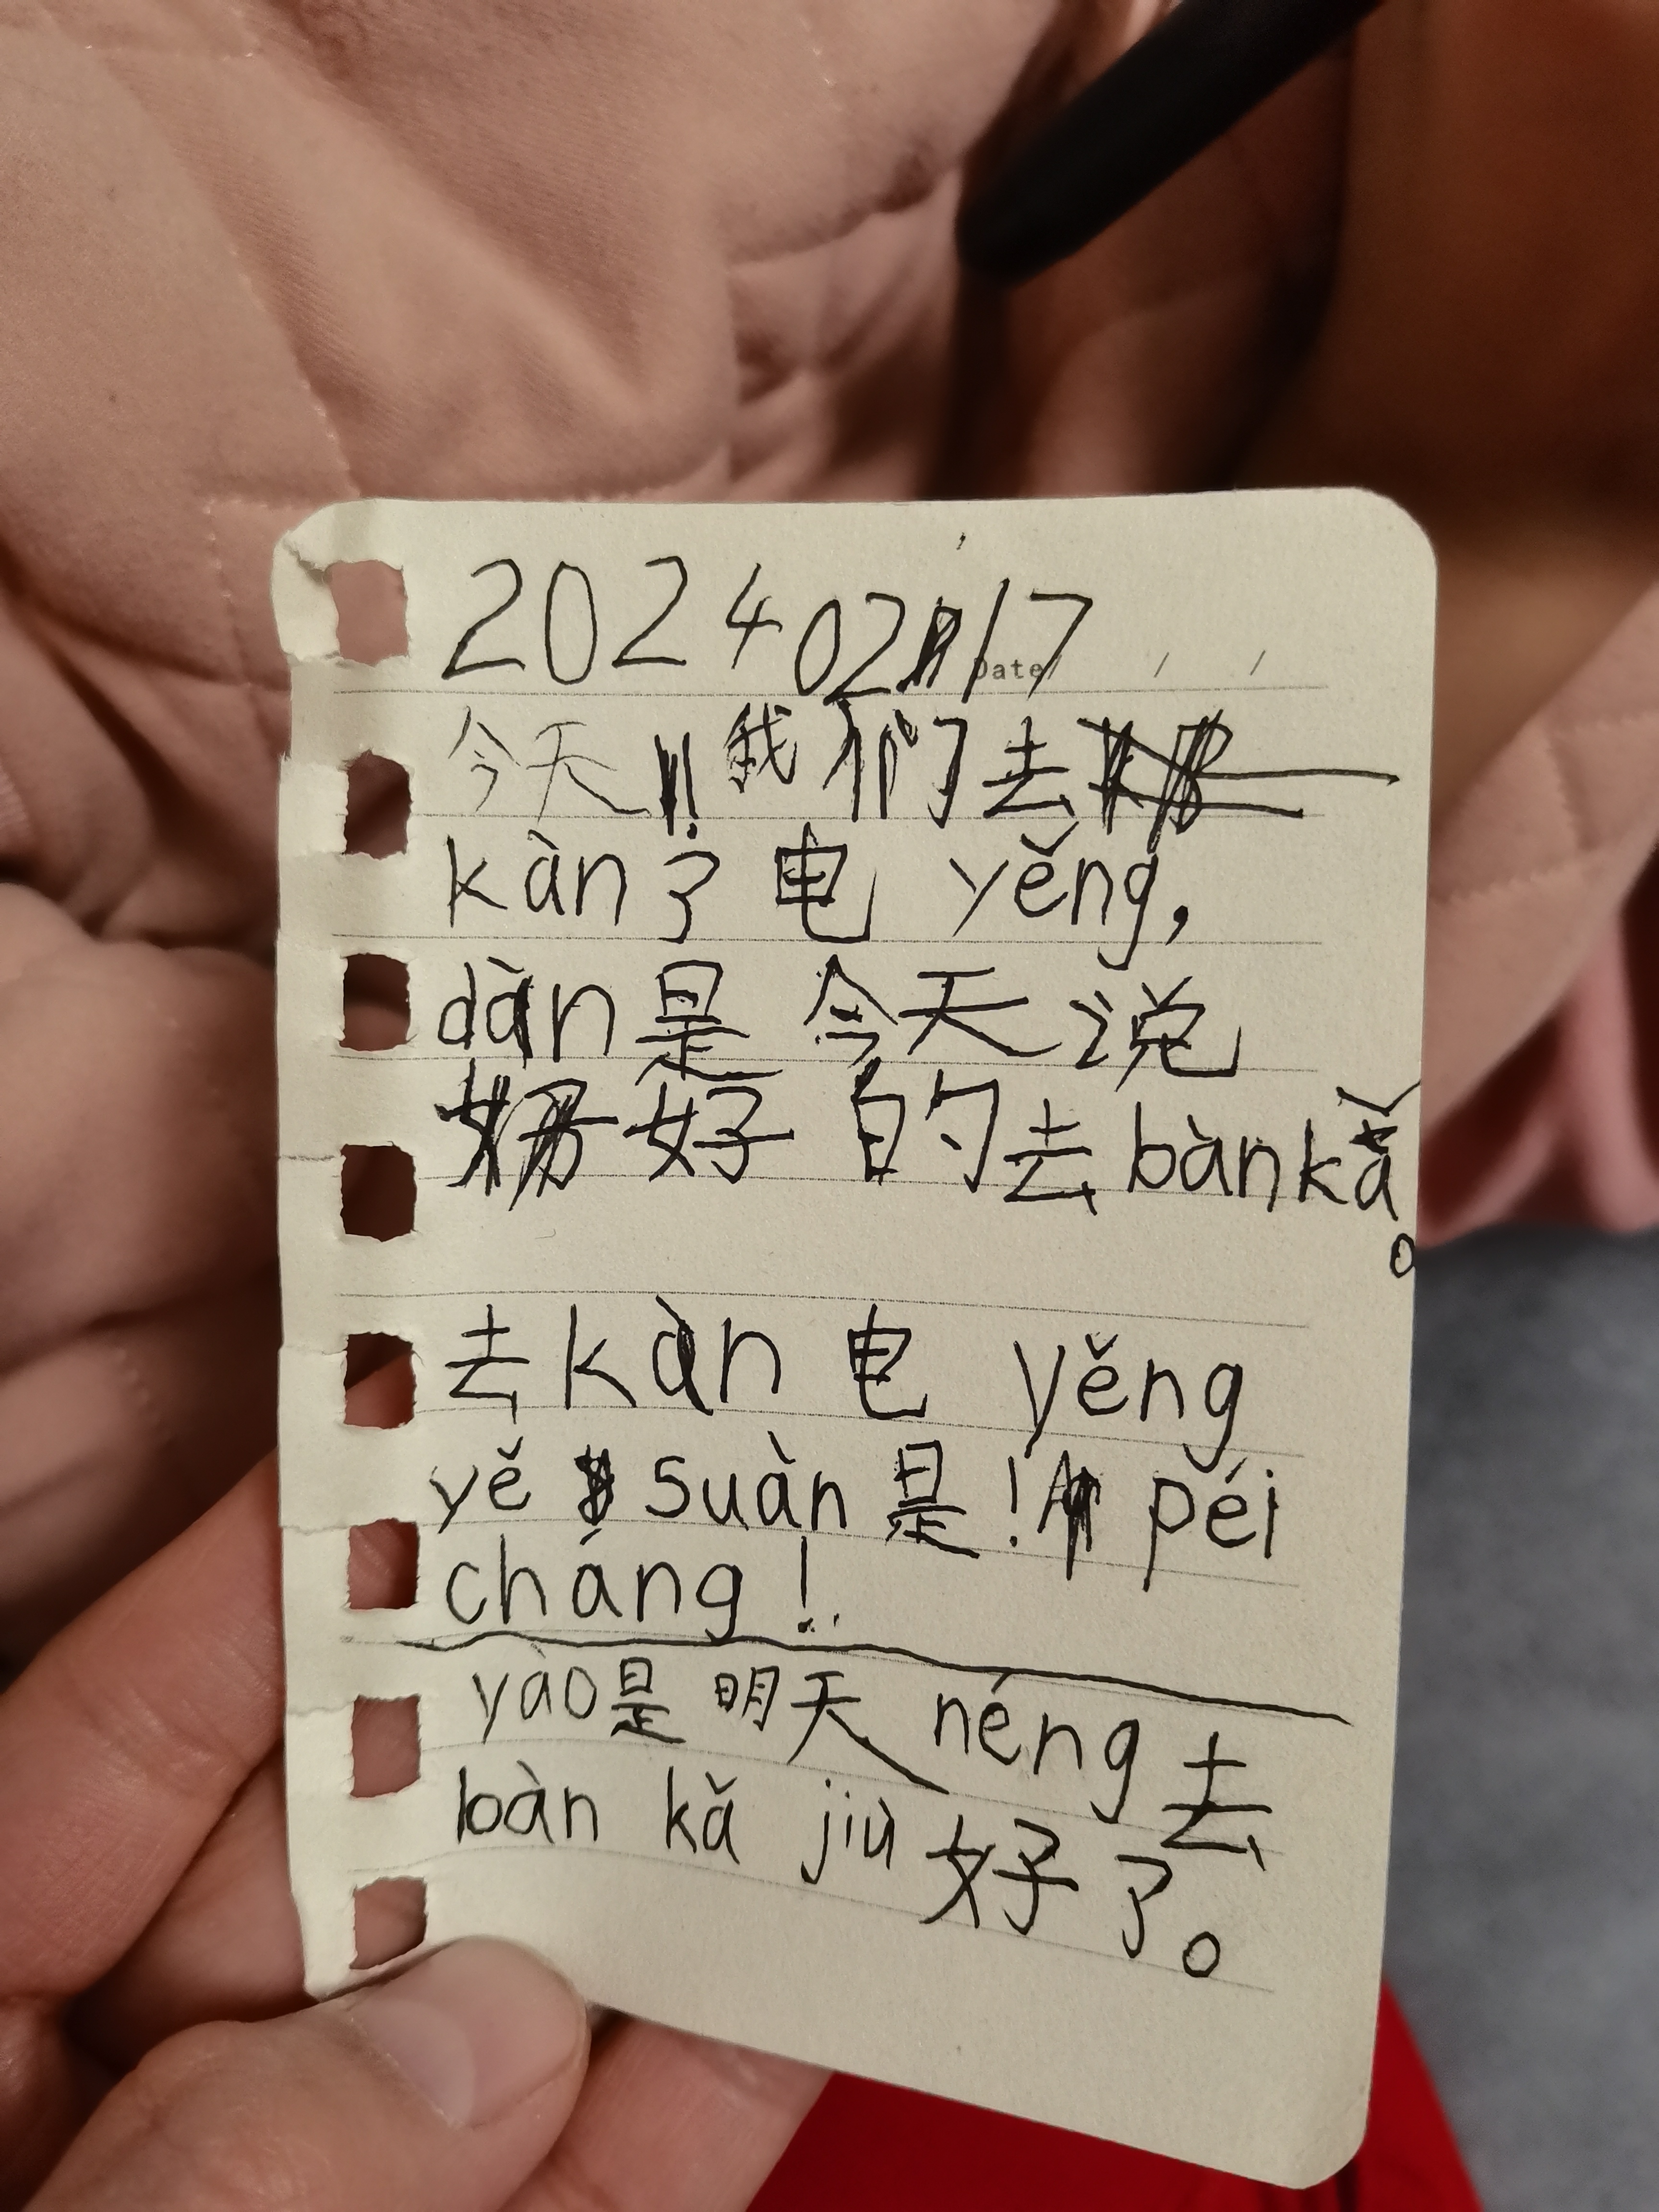 2024 02 17
Date / /
今天 我们去
kàn了电 yěng,
dàn是今天说
好的去bànkǎ。
去kàn 电 yěng
yě suàn是! péi
cháng!
yào是明天 néng 去
bàn kǎ jiù 好了。